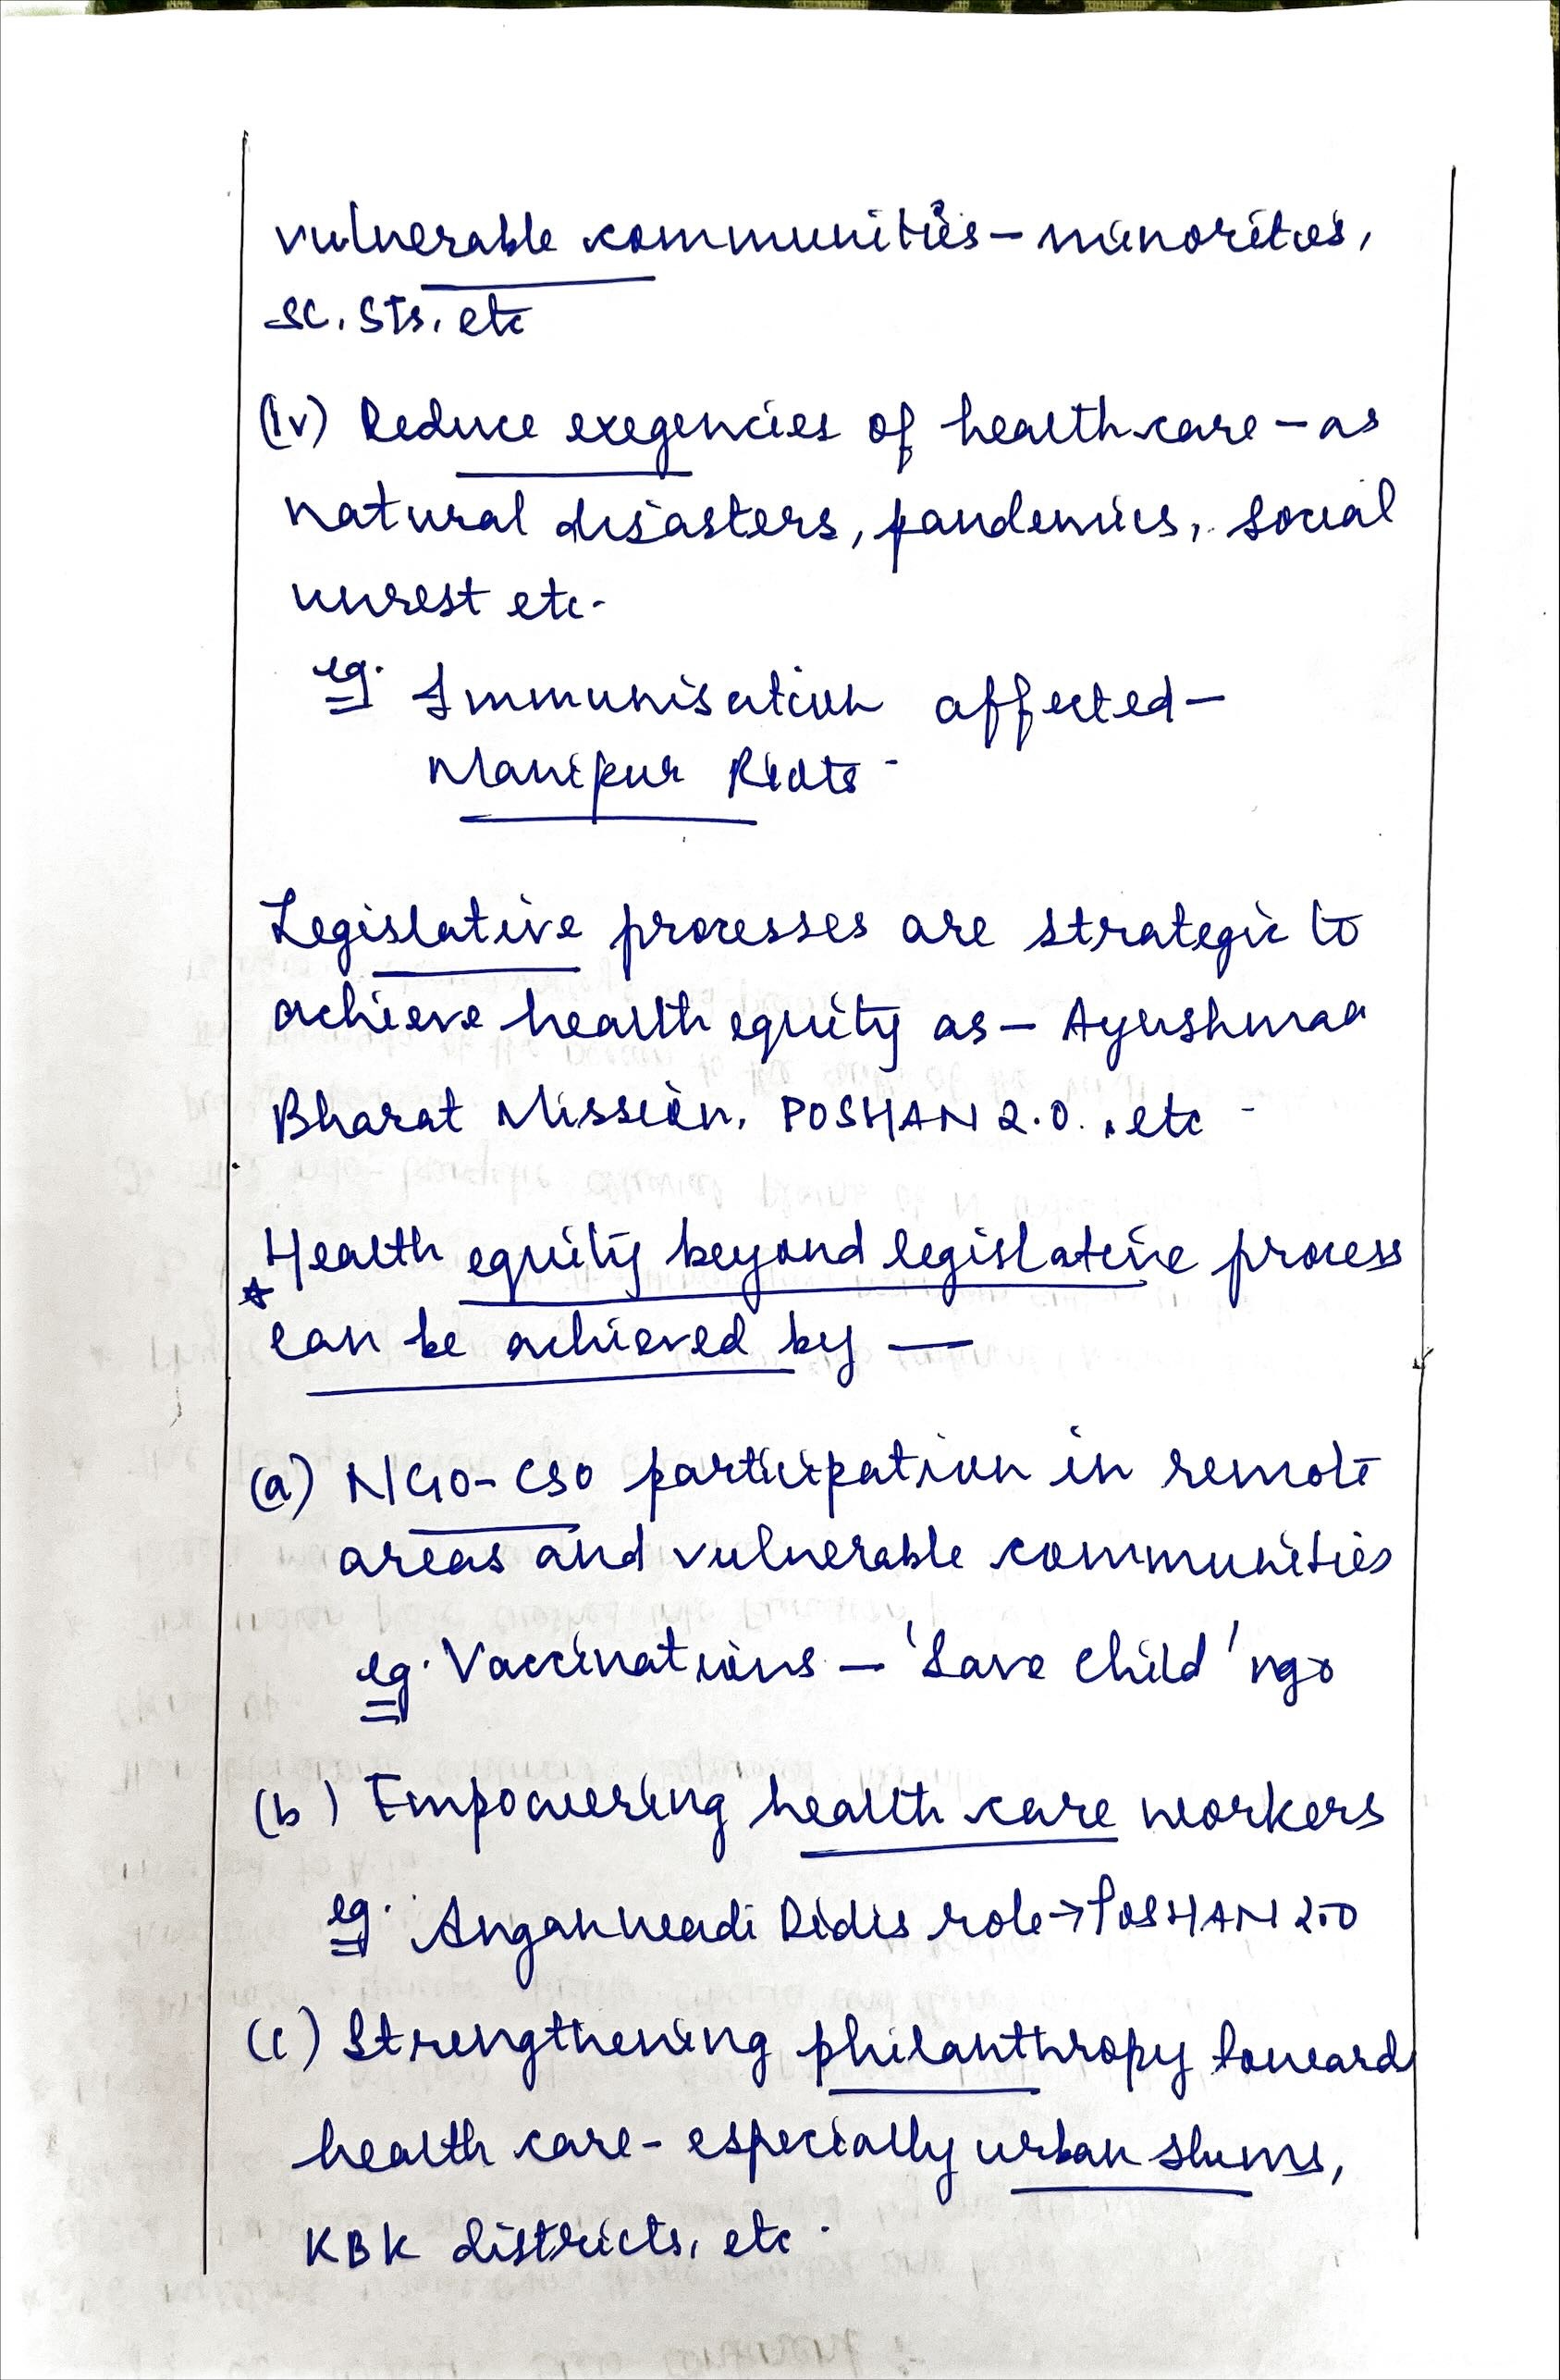 vulnerable communities - minorities,
SC, STs, etc
(iv) Reduce exegencies of healthcare - as
natural disasters, pandemics, social
unrest etc.
eg. Immunisation affected -
Manipur Riots -
Legislative processes are strategic to
achieve health equity as - Ayushman
Bharat Mission, POSHAN 2.0., etc -
* Health equity beyond legislative process
can be achieved by —
(a) NGO-CSO participation in remote
areas and vulnerable communities
eg. Vaccinations - 'Save Child' ngo
(b) Empowering health care workers
eg. Anganwadi Didis role → POSHAN 2.0
(c) Strengthening philanthropy towards
health care - especially urban slums,
KBK districts, etc.